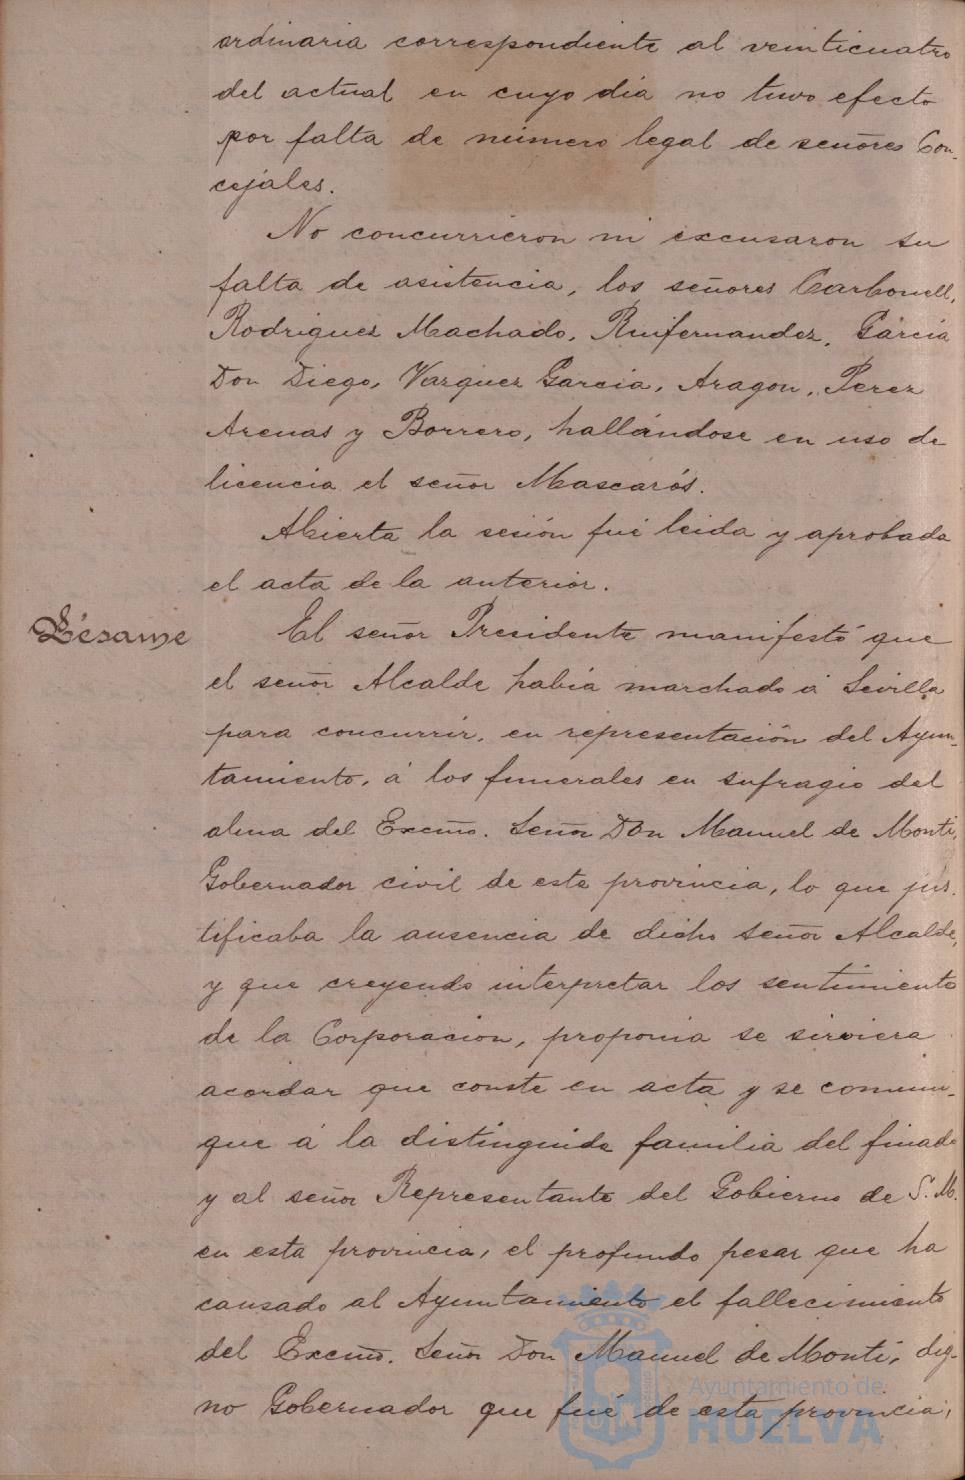 ordinaria correspondiente al veinticuatro
del actual en cuyo dia no tuvo efecto
por falta de número legal de señores Con-
cejales.
No concurrieron ni excusaron su
falta de asistencia, los señores Carbonell,
Rodriguez Machado, Ruifernandez, Garcia
Don Diego, Vazquez Garcia, Aragon, Perez
Arenas y Borrero, hallándose en uso de
licencia el señor Mascarós.
Abierta la sesión fué leida y aprobada
el acta de la anterior.
Pésame
El señor Presidente manifestó que
el señor Alcalde habia marchado á Sevilla
para concurrir, en representación del Ayun-
tamiento, á los funerales en sufragio del
alma del Excmo. Señor Don Manuel de Monti,
Gobernador civil de esta provincia, lo que jus-
tificaba la ausencia de dicho señor Alcalde,
y que creyendo interpretar los sentimiento
de la Corporacion, proponia se sirviera
acordar que conste en acta y se comuni-
que á la distinguida familia del finado
y al señor Representante del Gobierno de S. M.
en esta provincia, el profundo pesar que ha
causado al Ayuntamiento el fallecimiento
del Excmo. Señor Don Manuel de Monti, dig-
no Gobernador que fué de esta provincia,
Ayuntamiento de
HUELVA